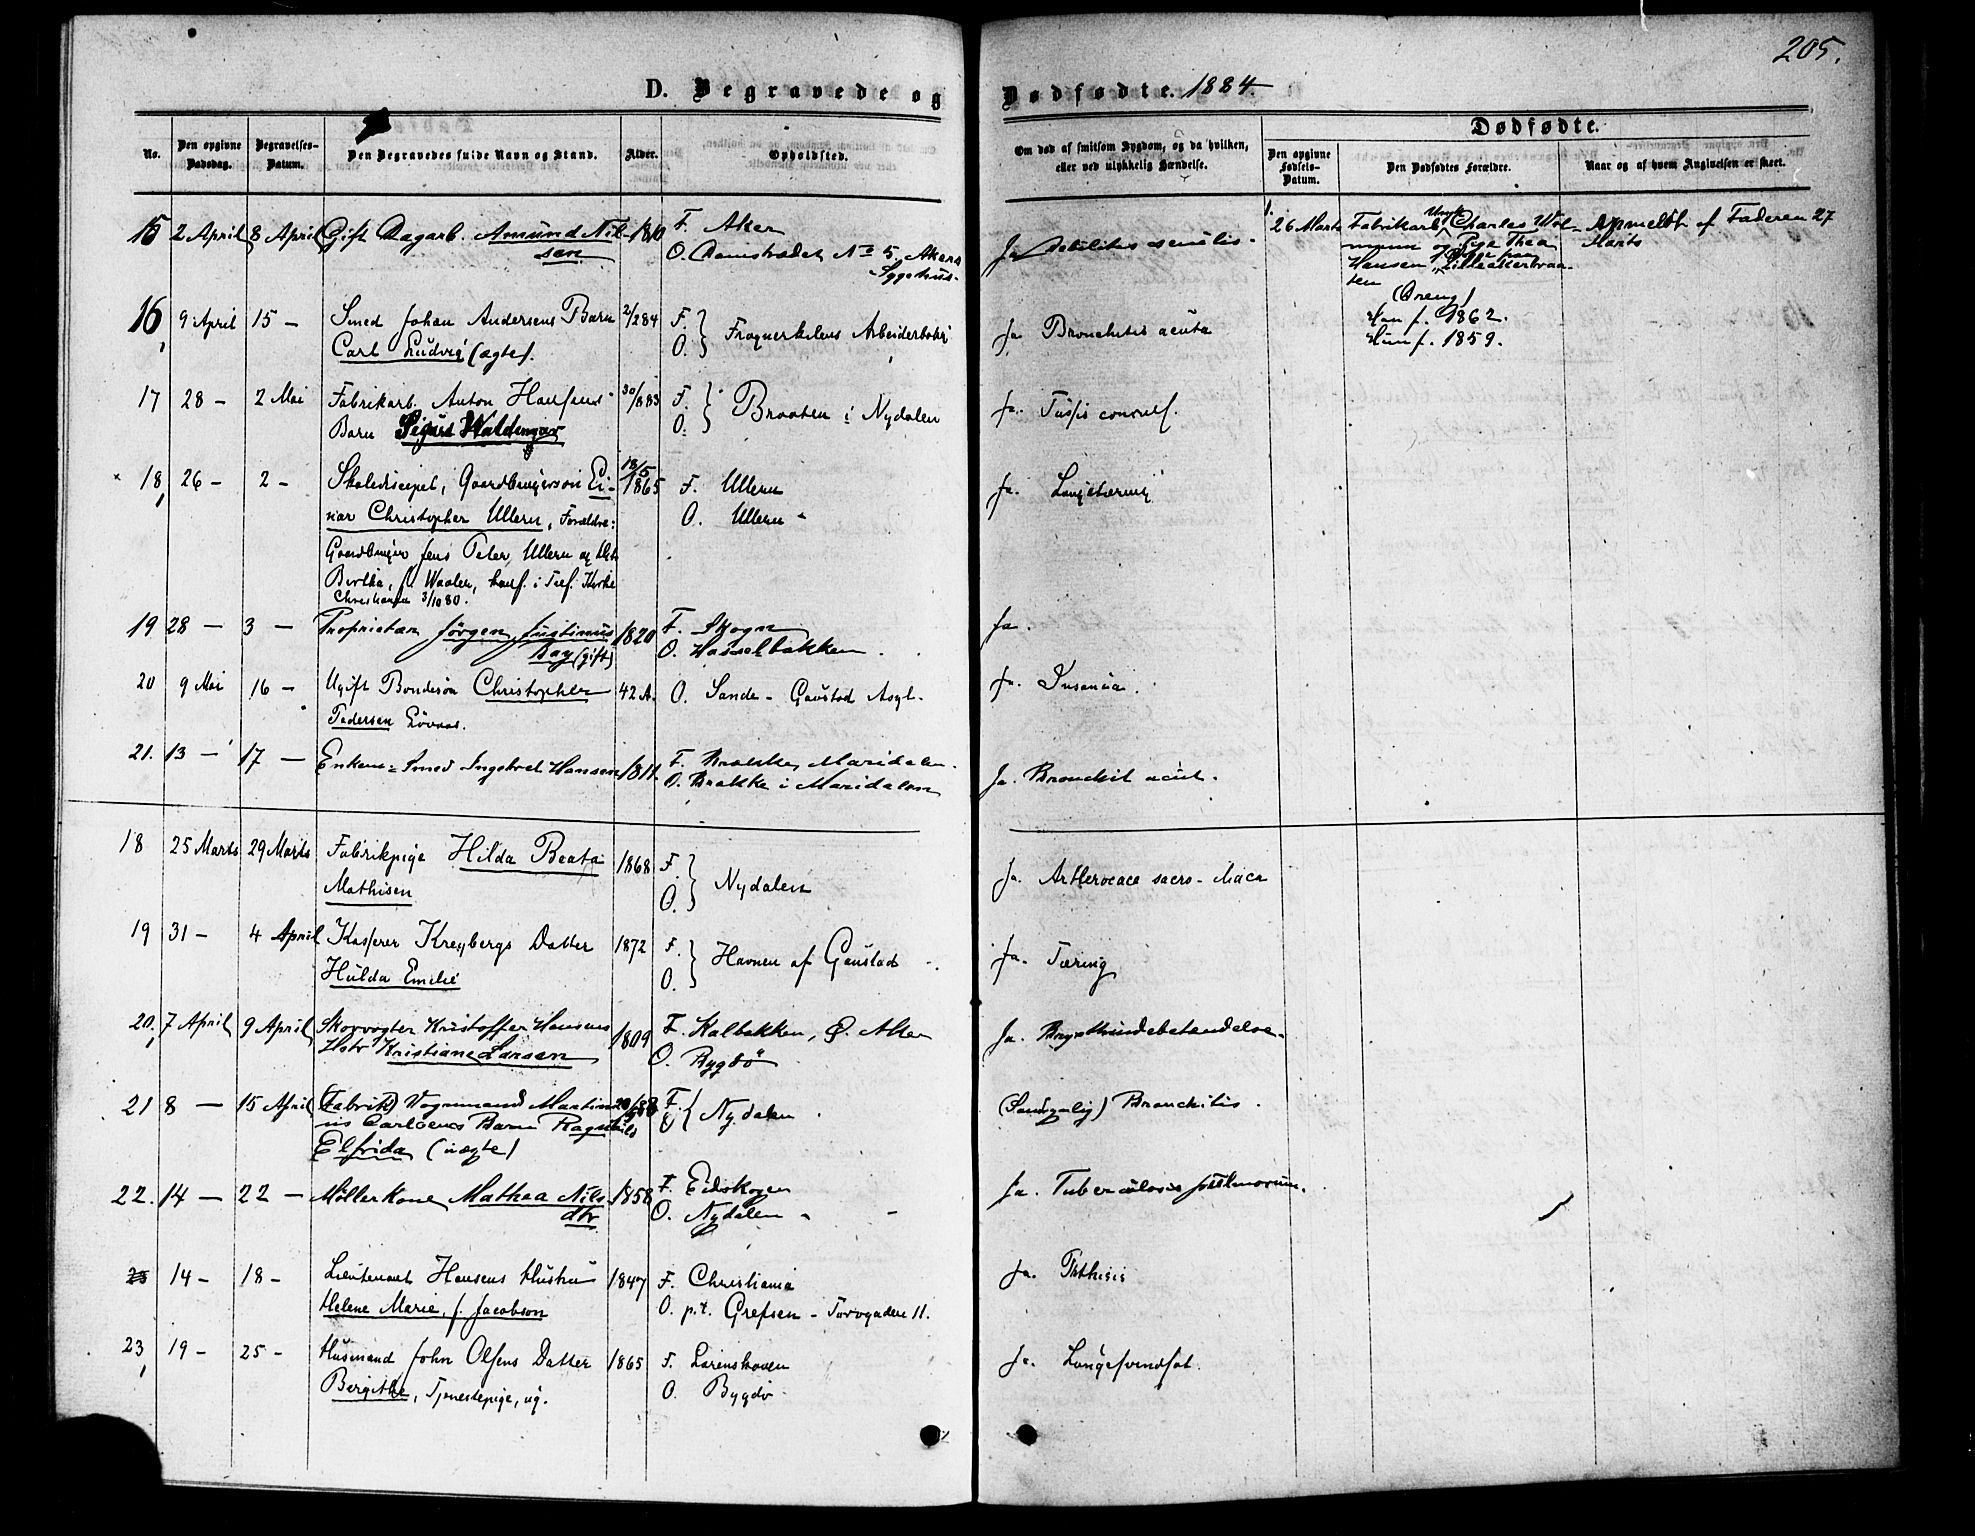 205.
D. Begravede og Dødfødte. 1884.
No.
Den opgivne Dødsdag.
Begravelses-Datum.
Den Begravedes fulde Navn og Stand.
Alder.
Opholdssted.
Om død af smitsom Sygdom, og da hvilken, eller ved ulykkelig Hændelse.
Dødfødte.
Den opgivne Fødsels-Datum.
Den Dødfødtes Forældre.
Naar og af hvem Angivelsen er skeet.
15 2 April 8 April Gift Dagarb. Amund Nil- 1810 F. Aker
sen O. No 5. Akers
Sygehus.
Ja Debilitas senilis.
1. 26 Marts Fabrikarb. Charles
og Pige Thea
Hansen
(Dreng)
Han f. 1862.
Hun f. 1859.
Anmeldt af Faderen 27
Marts
16 9 April 15 - Smed Johan Andersens Barn 2/2 84 F.
Carl Ludvig (ægte). O. Frognerkilens Arbeiderbolig
Ja. Bronchitis acuta
17 28 - 2 Mai Fabrikarb. Anton Hansens 30/8 83 F.
Barn Sigurd Waldemar O. Braaten i Nydalen
Ja. Tussis convuls.
18 26 - 2 - Skolediscipel, Gaardbrugersøn Ei- 18/5 1865 F. Ullern
nar Christopher Ullern, Forældre: O. Ullern
Gaardbruger Jens Peter Ullern og Hstr
Bertha, f. Waaler, konf. i Tref. Kirke
Christiania 3/10 80.
Ja. Lungetæring
19 28 - 3 - Proprietær Jørgen Justinus 1820 F. Skogn
(gift) O. Hasselbakken
Ja.
20 9 Mai 16 - Ugift Bondesøn Christopher 42 A. O. Sande - Gaustad Asyl.
Pedersen Løvaas.
Ja. Insania.
21. 13 - 17 - Enkem. Smed Ingebret Hansen 1811. F. Brække, Maridalen.
O. Brække i Maridalen
Ja. Bronchit acut.
18 25 Marts 29 Marts Fabrikpige Hilda Beata 1868 F.
Mathisen O. Nydalen
Ja.
19 31 - 4 April Kasserer Kreybergs Datter 1872 F.
Hulda Emilie O. Havnen af Gaustad
Ja. Tæring
20. 7 April 9 April Skovvogter Kristoffer Hansens 1809 F. Kalbakken, Ø. Aker
Hstr Kristiane Larsen O. Bygdø
Ja. Brysthindebetændelse.
21 8 - 15 April (Fabrik) Vognmand Martin- F.
ius Carlsens Barn Ragnhild O. Nydalen
Elfrida (uægte)
(Sandsynlig) Bronchitis.
22. 14 - 22 - Møllerkone Mathea Nils- 1858 F. Eidskogen
dtr O. Nydalen
Ja. Tuberculosis pulmonum.
23 14 - 18 - Lieutenant Hansens Hustru 1847 F. Christiania
Helene Marie, f. Jacobson O. p.t. Grefsen - Torvgaden 11.
Ja. Phthisis
23 19 - 25 - Husmand John Olsens Datter 1865 F. Lørenskoven
Bergithe, Tjenestepige, ug. O. Bygdø
Ja. Lungesvindsot.